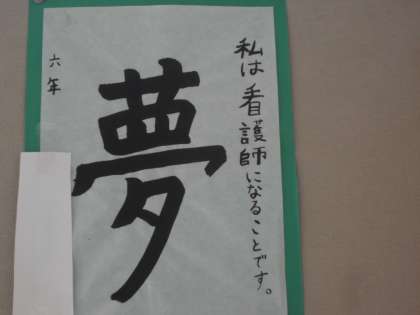 私は看護師になることです。
夢
六年